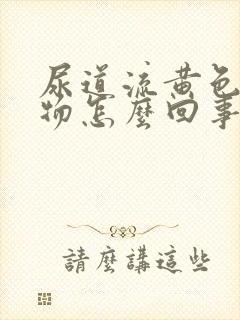 尿道流黄色
物怎麼回事
請麼講這些